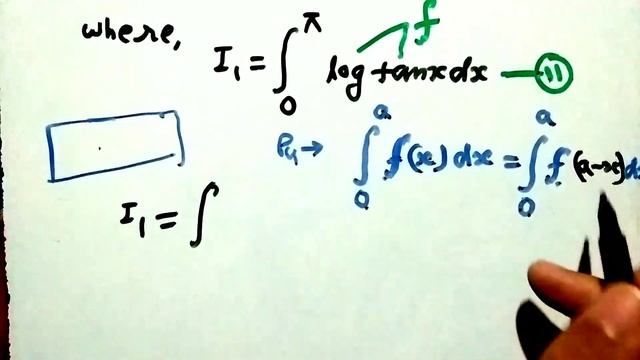 where,
I₁ = ∫₀^π log tanx dx — (11)
f
P₄ → ∫₀^a f(x) dx = ∫₀^a f(a-x) dx
I₁ = ∫